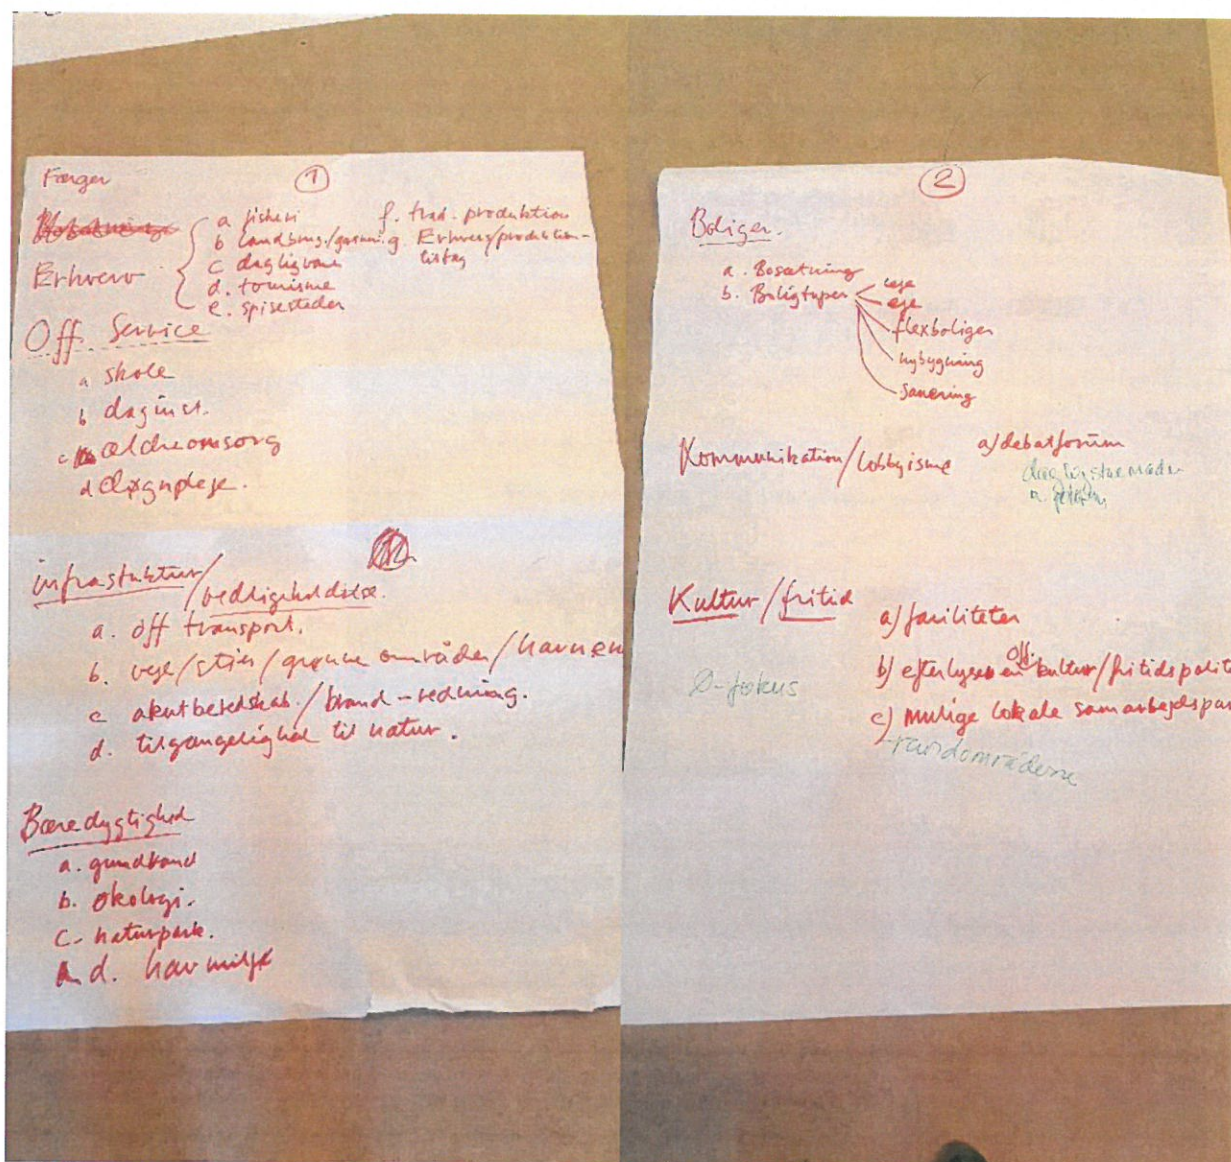 ①
Færger
Erhverv
a fisheri
b landbrug/gartneri
c dagligvare
d. tourisme
e. spisesteder
f. trad. produktion
g. Erhvervs/produktion-
tiltag
Off. Service
a skole
b daginst.
c ældreomsorg
d døgnpleje.
infrastuktur/
vedligeholdelse.
a. off transport.
b. veje/stier/grønne områder/havnen
c akutberedskab./brand-redning.
d. tilgængelighed til natur.
Bæredygtighed
a. grundvand
b. økologi.
c- naturpark.
d. havmiljø
②
Boliger.
a. Bosætning
b. Boligtyper
leje
eje
flexboliger
nybygning
sanering
Kommunikation/lobbyisme
a) debatforum
Kultur/fritid
a) faciliteter
b) efterlyser en off. kultur/fritidspolit
c) mulige lokale samarbejdspar
Ø-fokus
-randområderne